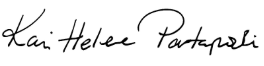 Kari Helene Partapuoli